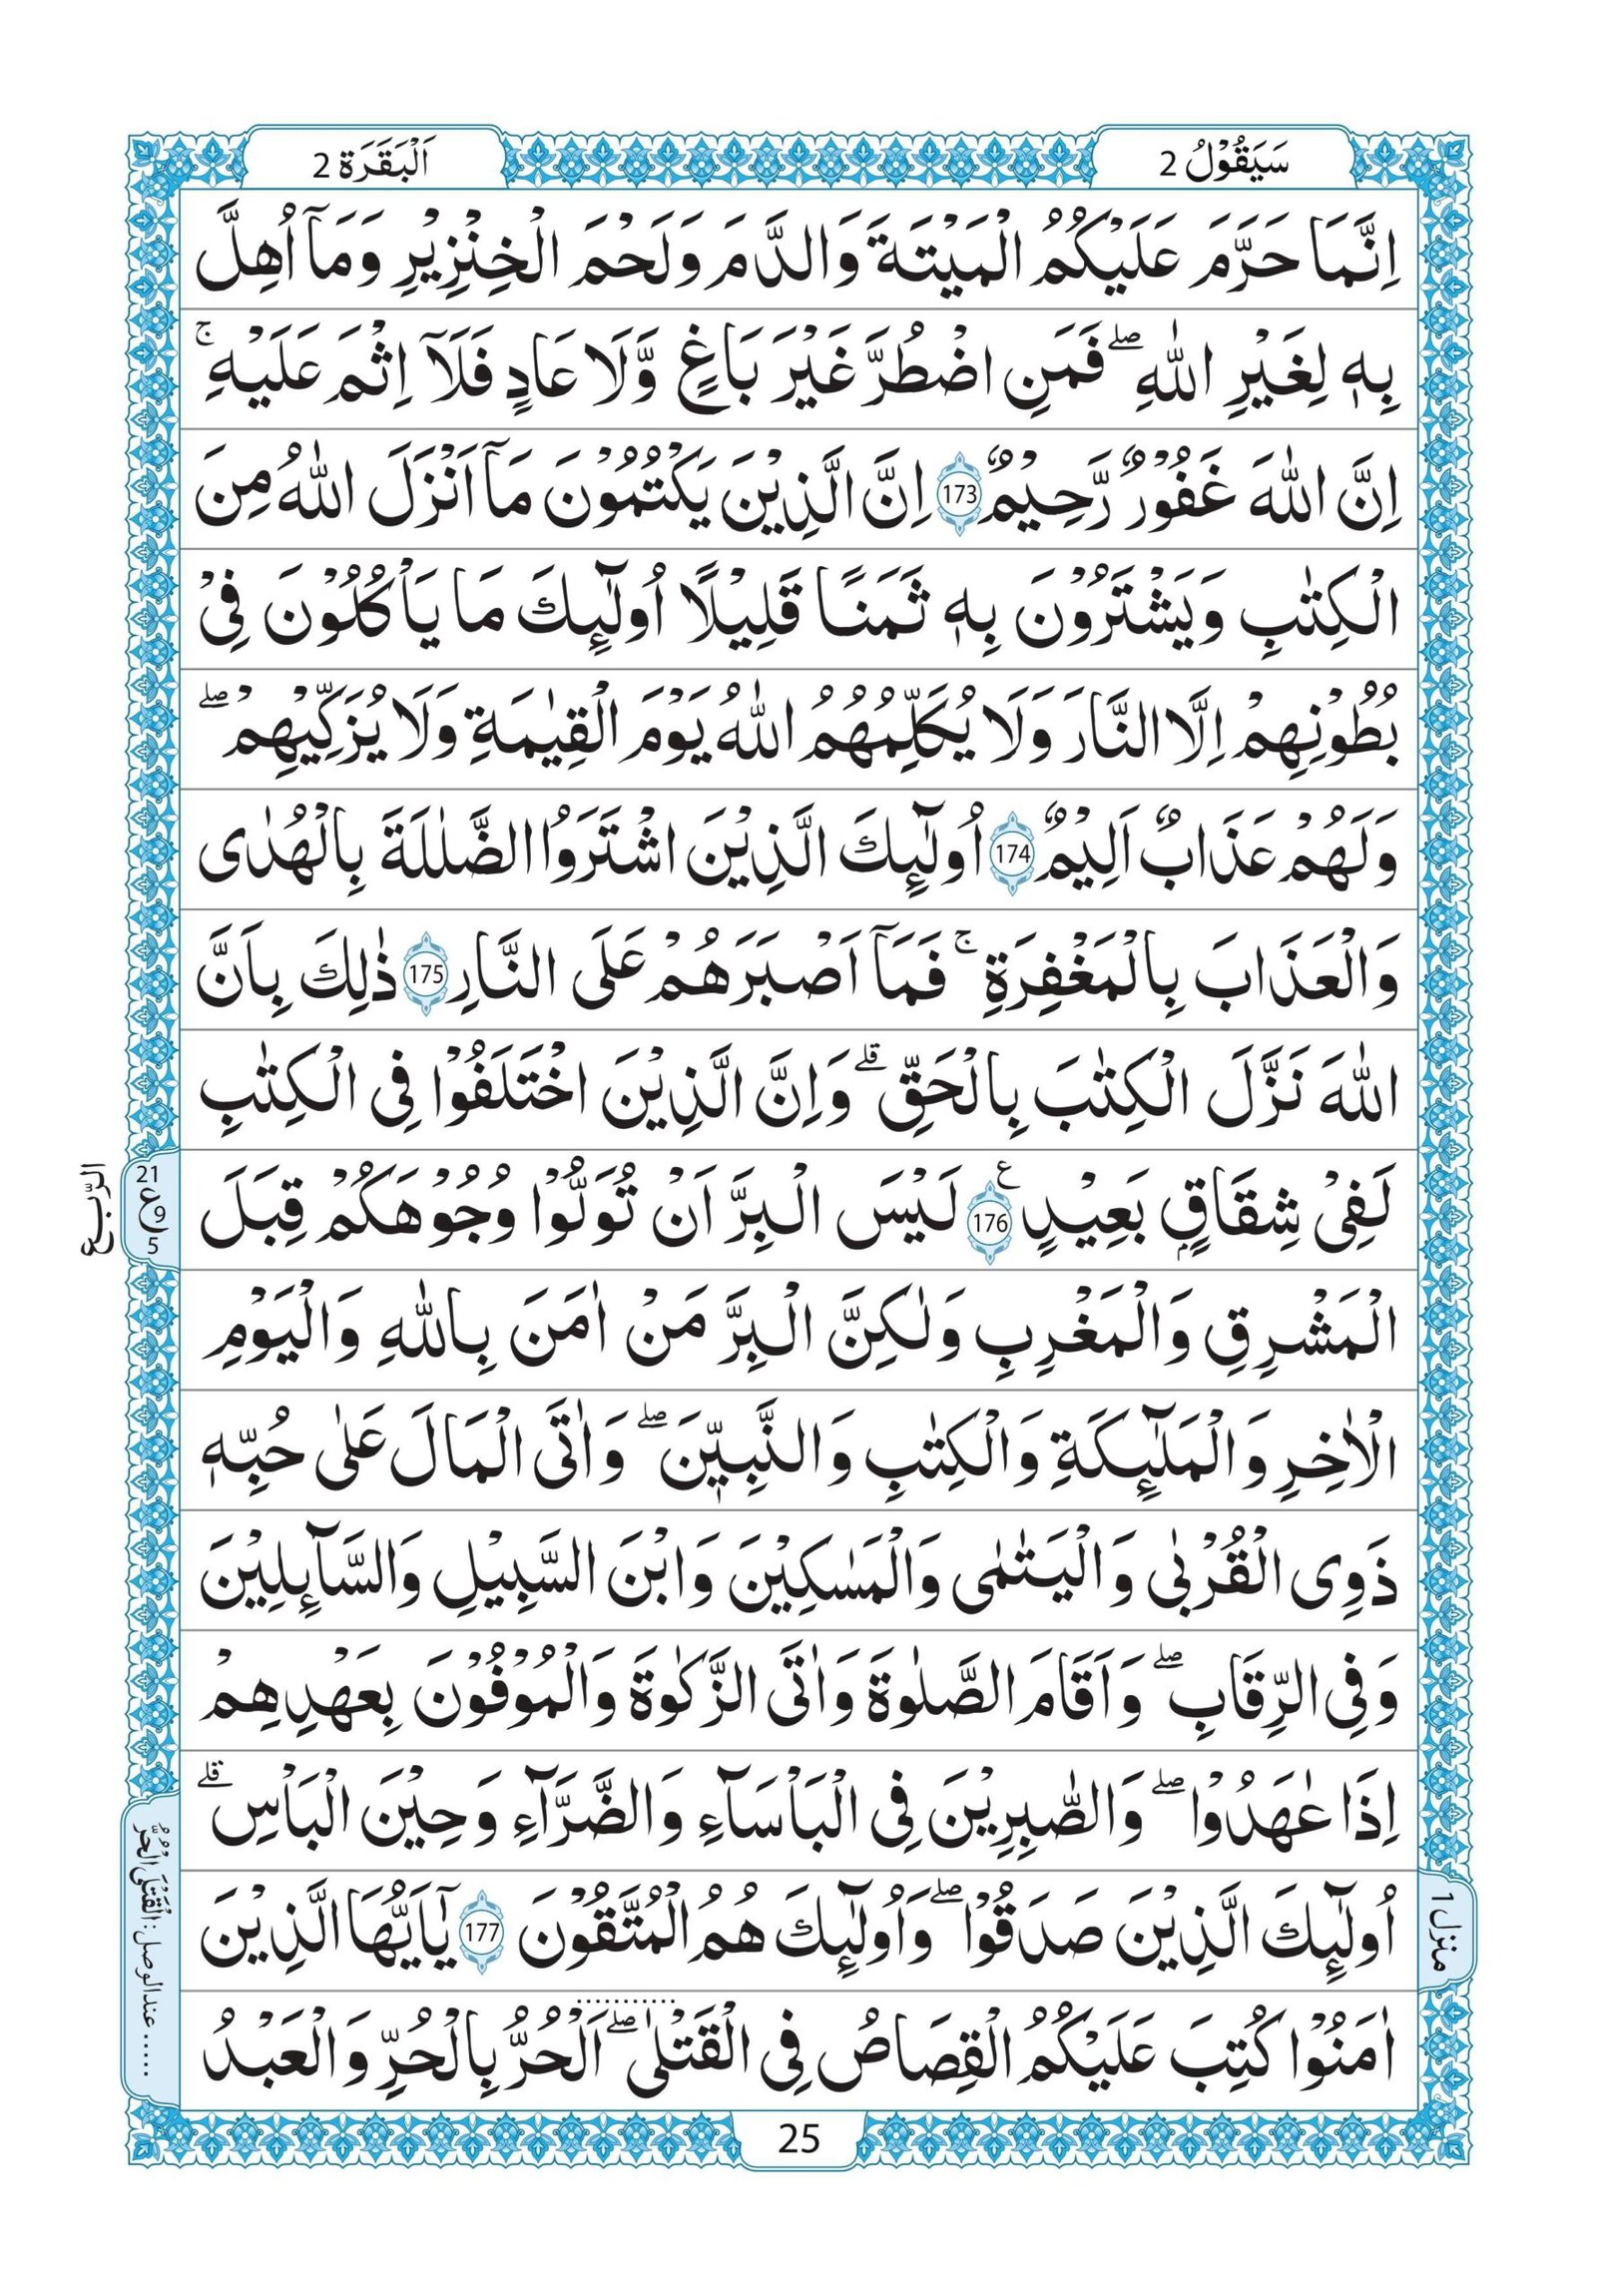 سَيَقُوْلُ 2
اَلْبَقَرَة 2
اِنَّمَا حَرَّمَ عَلَيْكُمُ الْمَيْتَةَ وَالدَّمَ وَلَحْمَ الْخِنْزِيْرِ وَمَآ اُهِلَّ
بِهٖ لِغَيْرِ اللّٰهِ ۖ فَمَنِ اضْطُرَّ غَيْرَ بَاغٍ وَّلَا عَادٍ فَلَآ اِثْمَ عَلَيْهِ ۚ
اِنَّ اللّٰهَ غَفُوْرٌ رَّحِيْمٌ 173 اِنَّ الَّذِيْنَ يَكْتُمُوْنَ مَآ اَنْزَلَ اللّٰهُ مِنَ
الْكِتٰبِ وَيَشْتَرُوْنَ بِهٖ ثَمَنًا قَلِيْلًا اُولٰٓئِكَ مَا يَاْكُلُوْنَ فِيْ
بُطُوْنِهِمْ اِلَّا النَّارَ وَلَا يُكَلِّمُهُمُ اللّٰهُ يَوْمَ الْقِيٰمَةِ وَلَا يُزَكِّيْهِمْ ۖ
وَلَهُمْ عَذَابٌ اَلِيْمٌ 174 اُولٰٓئِكَ الَّذِيْنَ اشْتَرَوُا الضَّلٰلَةَ بِالْهُدٰى
وَالْعَذَابَ بِالْمَغْفِرَةِ ۚ فَمَآ اَصْبَرَهُمْ عَلَى النَّارِ 175 ذٰلِكَ بِاَنَّ
اللّٰهَ نَزَّلَ الْكِتٰبَ بِالْحَقِّ ۗ وَاِنَّ الَّذِيْنَ اخْتَلَفُوْا فِى الْكِتٰبِ
لَفِيْ شِقَاقٍۢ بَعِيْدٍ ع 176 لَيْسَ الْبِرَّ اَنْ تُوَلُّوْا وُجُوْهَكُمْ قِبَلَ
الرّبع
21
ع 9
5
الْمَشْرِقِ وَالْمَغْرِبِ وَلٰكِنَّ الْبِرَّ مَنْ اٰمَنَ بِاللّٰهِ وَالْيَوْمِ
الْاٰخِرِ وَالْمَلٰٓئِكَةِ وَالْكِتٰبِ وَالنَّبِيّٖنَ ۖ وَاٰتَى الْمَالَ عَلٰى حُبِّهٖ
ذَوِى الْقُرْبٰى وَالْيَتٰمٰى وَالْمَسٰكِيْنَ وَابْنَ السَّبِيْلِ وَالسَّآئِلِيْنَ
وَفِى الرِّقَابِ ۖ وَاَقَامَ الصَّلٰوةَ وَاٰتَى الزَّكٰوةَ وَالْمُوْفُوْنَ بِعَهْدِهِمْ
اِذَا عٰهَدُوْا ۖ وَالصّٰبِرِيْنَ فِى الْبَاْسَآءِ وَالضَّرَّآءِ وَحِيْنَ الْبَاْسِ ۗ
اُولٰٓئِكَ الَّذِيْنَ صَدَقُوْا ۖ وَاُولٰٓئِكَ هُمُ الْمُتَّقُوْنَ 177 يٰٓاَيُّهَا الَّذِيْنَ
اٰمَنُوْا كُتِبَ عَلَيْكُمُ الْقِصَاصُ فِى الْقَتْلٰى ۖ اَلْحُرُّ بِالْحُرِّ وَالْعَبْدُ
منزل 1
..... عندالوصل : الْقَتْلَى الْحُرُّ
25